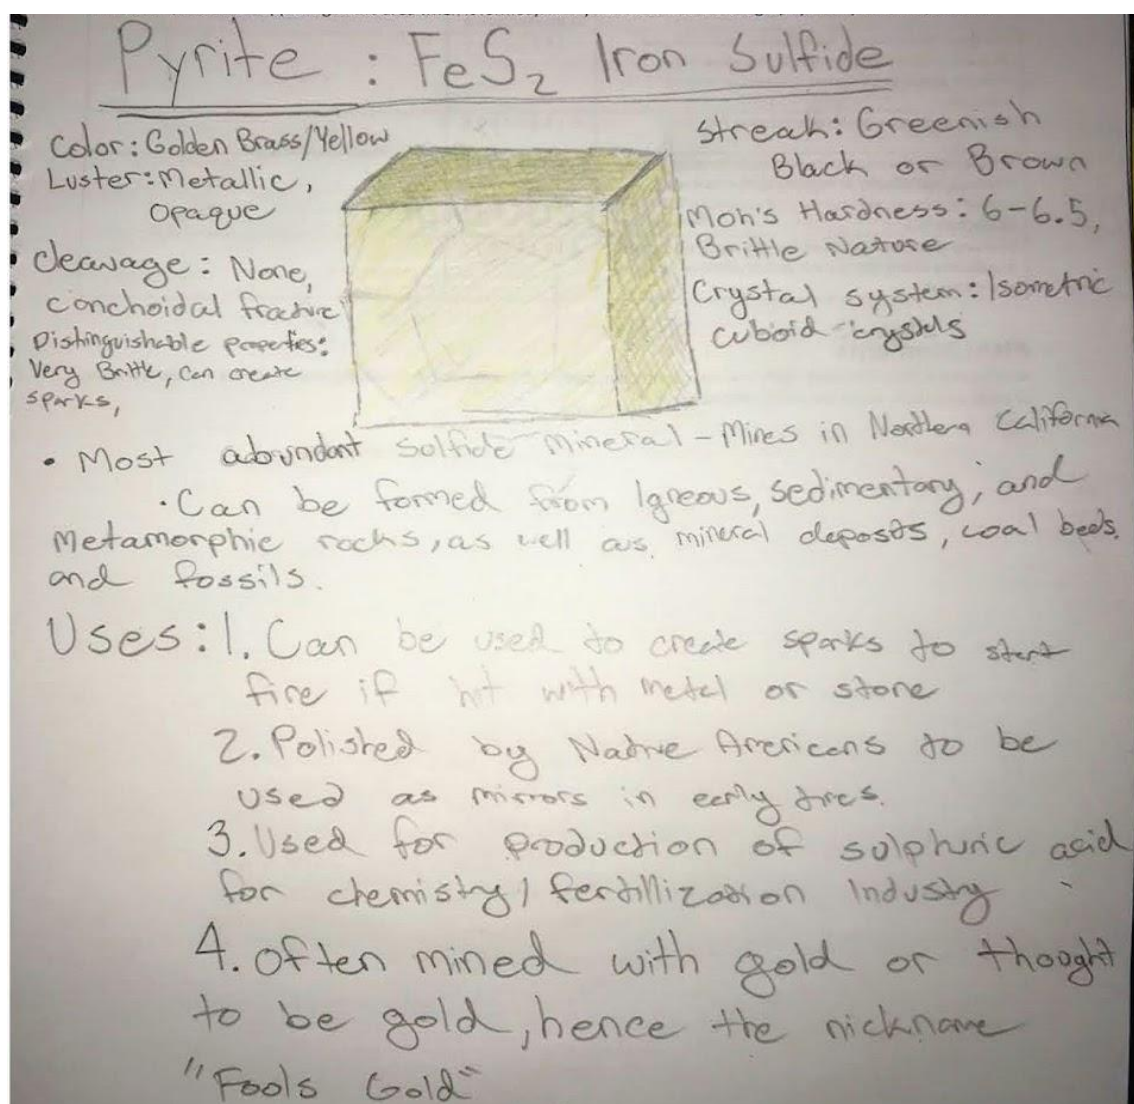 Pyrite : FeS2 Iron Sulfide
Color: Golden Brass/Yellow
Luster: Metallic,
Opaque
Cleavage: None,
conchoidal fracture
Distinguishable properties:
Very Brittle, can create
sparks,
Streak: Greenish
Black or Brown
Moh's Hardness: 6-6.5,
Brittle Nature
Crystal system: Isometric
cuboid crystals
• Most abundant sulfide mineral - Mines in Northern California
• Can be formed from Igneous, sedimentary, and
Metamorphic rocks, as well as mineral deposits, coal beds,
and fossils.
Uses: 1. Can be used to create sparks to start
fire if hit with metal or stone
2. Polished by Native Americans to be
used as mirrors in early times.
3. Used for production of sulphuric acid
for chemistry/fertillization Industry
4. often mined with gold or thought
to be gold, hence the nickname
"Fools Gold"